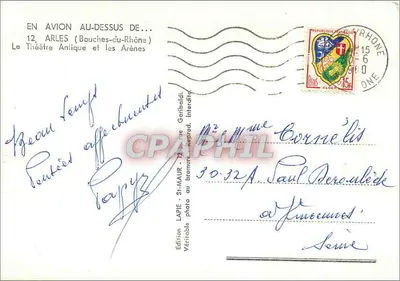 EN AVION AU-DESSUS DE...
12. ARLES (Bouches-du-Rhône)
Le Théâtre Antique et les Arènes
Beau temps
Pensées affectueuses
Papy
Edition LAPIE - St-MAUR
Véritable photo au bromure
CPAPHIL
RHONE
15
-6
Mr Mme Cornélis
30-32 A. Paul Deroulède
à Vincennes
Seine